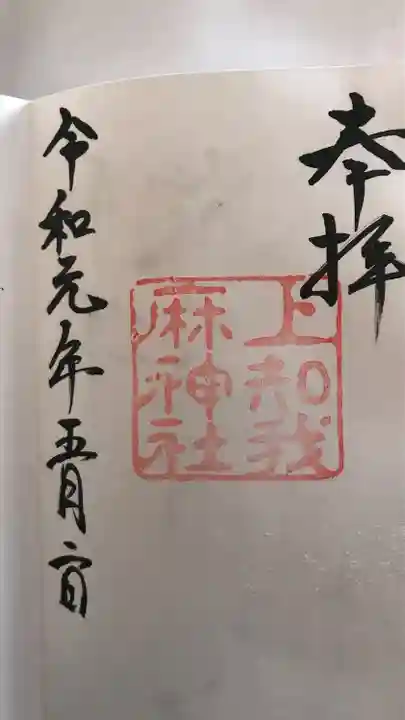 奉拝
上知我
麻神社
令和元年五月一日